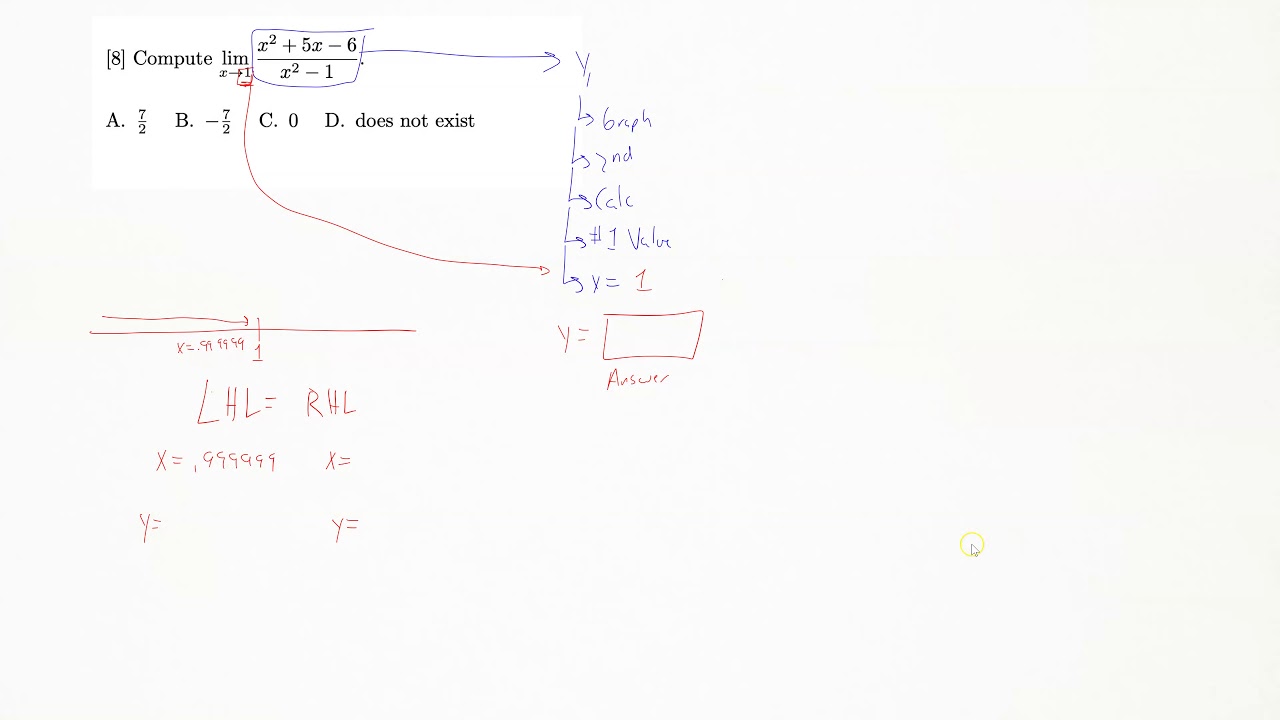 [8] Compute lim x→1 x² + 5x − 6 / x² − 1.
A. 7/2 B. −7/2 C. 0 D. does not exist
Y₁
Graph
2nd
Calc
#1 Value
x= 1
Y=
Answer
x=.999999 1
LHL= RHL
x=.999999 x=
y= y=